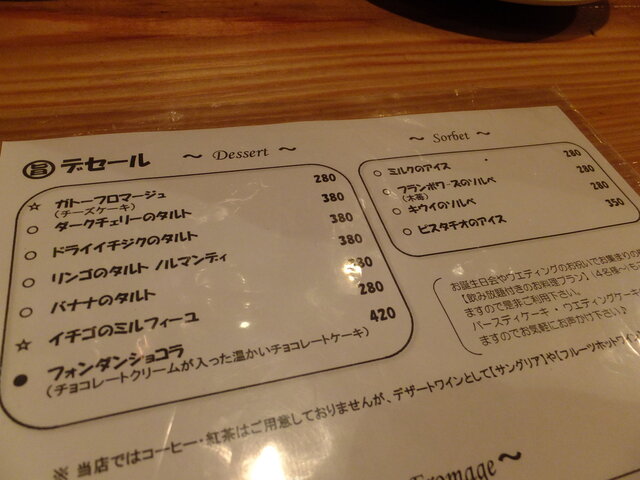 旨 デセール ～ Dessert ～
☆ ガトーフロマージュ 280
(チーズケーキ)
○ ダークチェリーのタルト 380
○ ドライイチジクのタルト 380
○ リンゴのタルト ノルマンディ 380
○ バナナのタルト 380
☆ イチゴのミルフィーユ 280
● フォンダンショコラ 420
(チョコレートクリームが入った温かいチョコレートケーキ)
～ Sorbet ～
○ ミルクのアイス 280
○ フランボワーズのソルベ 280
(木苺)
○ キウイのソルベ 280
○ ピスタチオのアイス 350
お誕生日会やウエディングのお祝いでお集まりの
【飲み放題付きのお料理プラン】(4名様～)もご
ますので是非ご利用下さい。
バースディケーキ・ウエディングケーキ
ますのでお気軽にお声かけ下さい♪
※ 当店ではコーヒー・紅茶はご用意しておりませんが、デザートワインとして【サングリア】や【フルーツホットワイン
Fromage ～